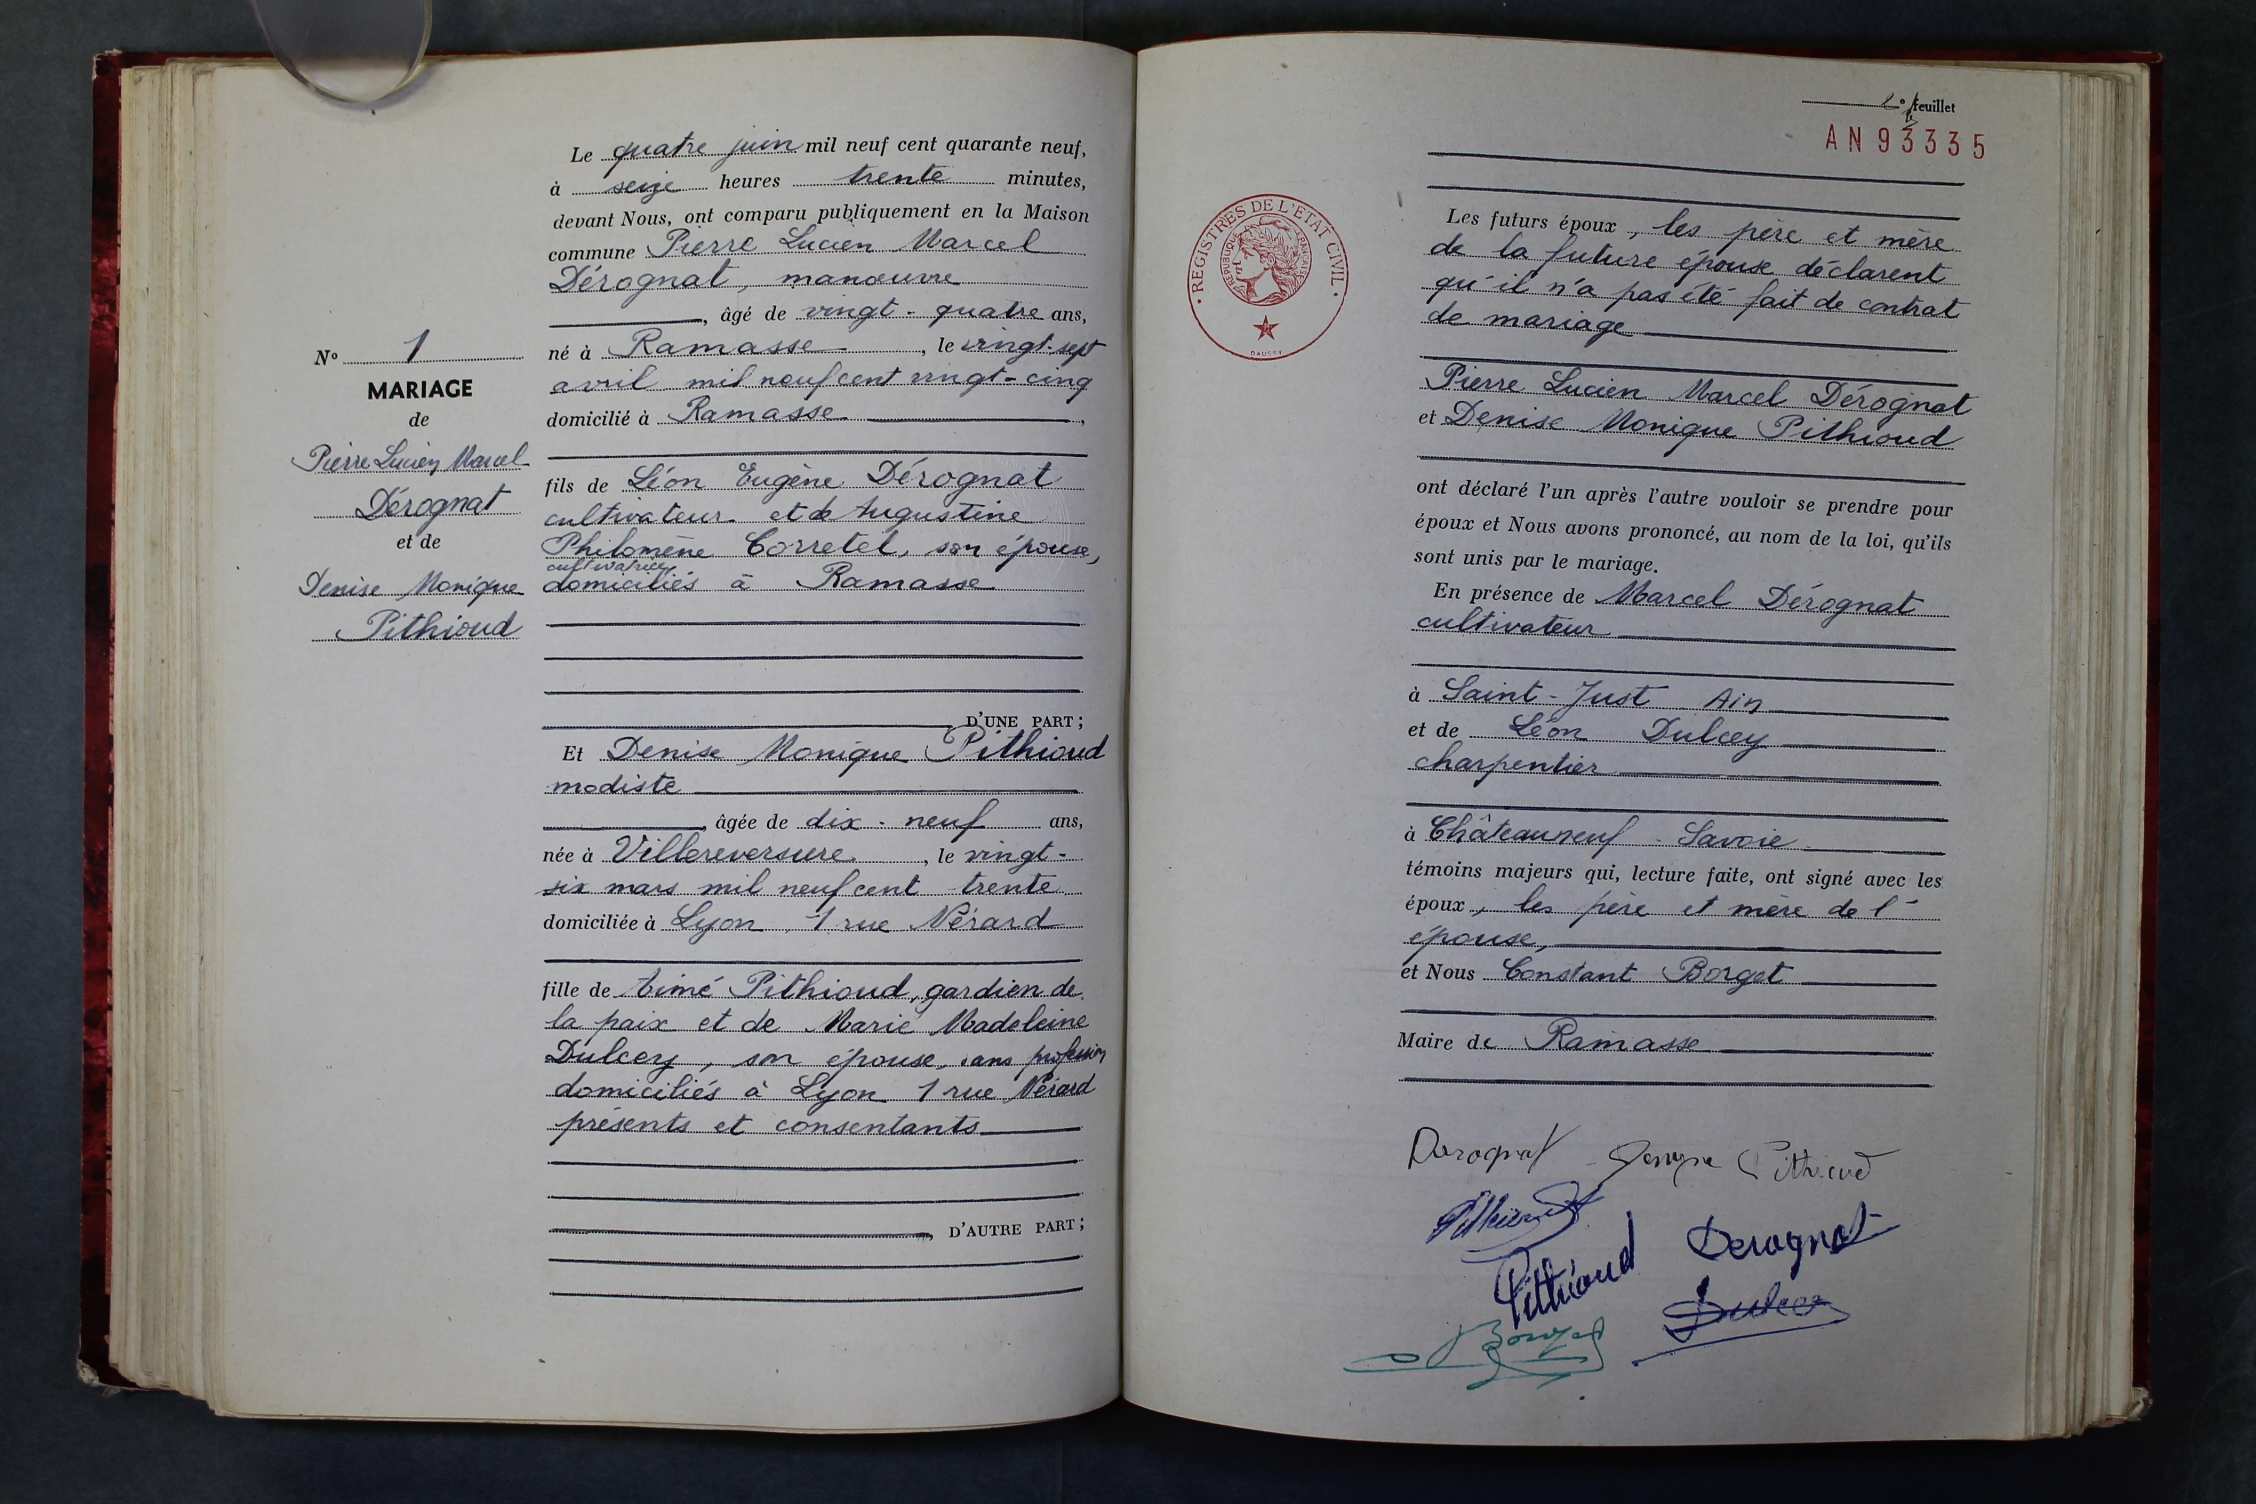 Le quatre juin mil neuf cent quarante neuf,
à seize heures trente minutes,
devant Nous, ont comparu publiquement en la Maison
commune Pierre Lucien Marcel
Dérognat, manœuvre
, âgé de vingt-quatre ans,
né à Ramasse, le vingt-sept
avril mil neuf cent vingt-cinq
domicilié à Ramasse,
fils de Léon Eugène Dérognat
cultivateur et de Augustine
Philomène Corretel, son épouse,
cultivatrice,
domiciliés à Ramasse
D'UNE PART ;
Et Denise Monique Pithioud
modiste
, âgée de dix-neuf ans,
née à Villereversure, le vingt-
six mars mil neuf cent trente
domiciliée à Lyon, 1 rue Nérard
fille de Aimé Pithioud, gardien de
la paix et de Marie Madeleine
Dulcey, son épouse, sans profession
domiciliés à Lyon 1 rue Nérard
présents et consentants
, D'AUTRE PART ;
N° 1
MARIAGE
de
Pierre Lucien Marcel
Dérognat
et de
Denise Monique
Pithioud
feuillet
AN93335
REGISTRES DE L'ETAT CIVIL
REPUBLIQUE FRANCAISE
DAUSSY
Les futurs époux, les père et mère
de la future épouse déclarent
qu'il n'a pas été fait de contrat
de mariage
Pierre Lucien Marcel Dérognat
et Denise Monique Pithioud
ont déclaré l'un après l'autre vouloir se prendre pour
époux et Nous avons prononcé, au nom de la loi, qu'ils
sont unis par le mariage.
En présence de Marcel Dérognat
cultivateur
à Saint-Just Ain
et de Léon Dulcey
charpentier
à Châteauneuf - Savoie
témoins majeurs qui, lecture faite, ont signé avec les
époux, les père et mère de l'
épouse,
et Nous Constant Borget
Maire de Ramasse
Derognat Denise Pithioud
Pithioud
Pithioud Derognat
Dulcey
Borget